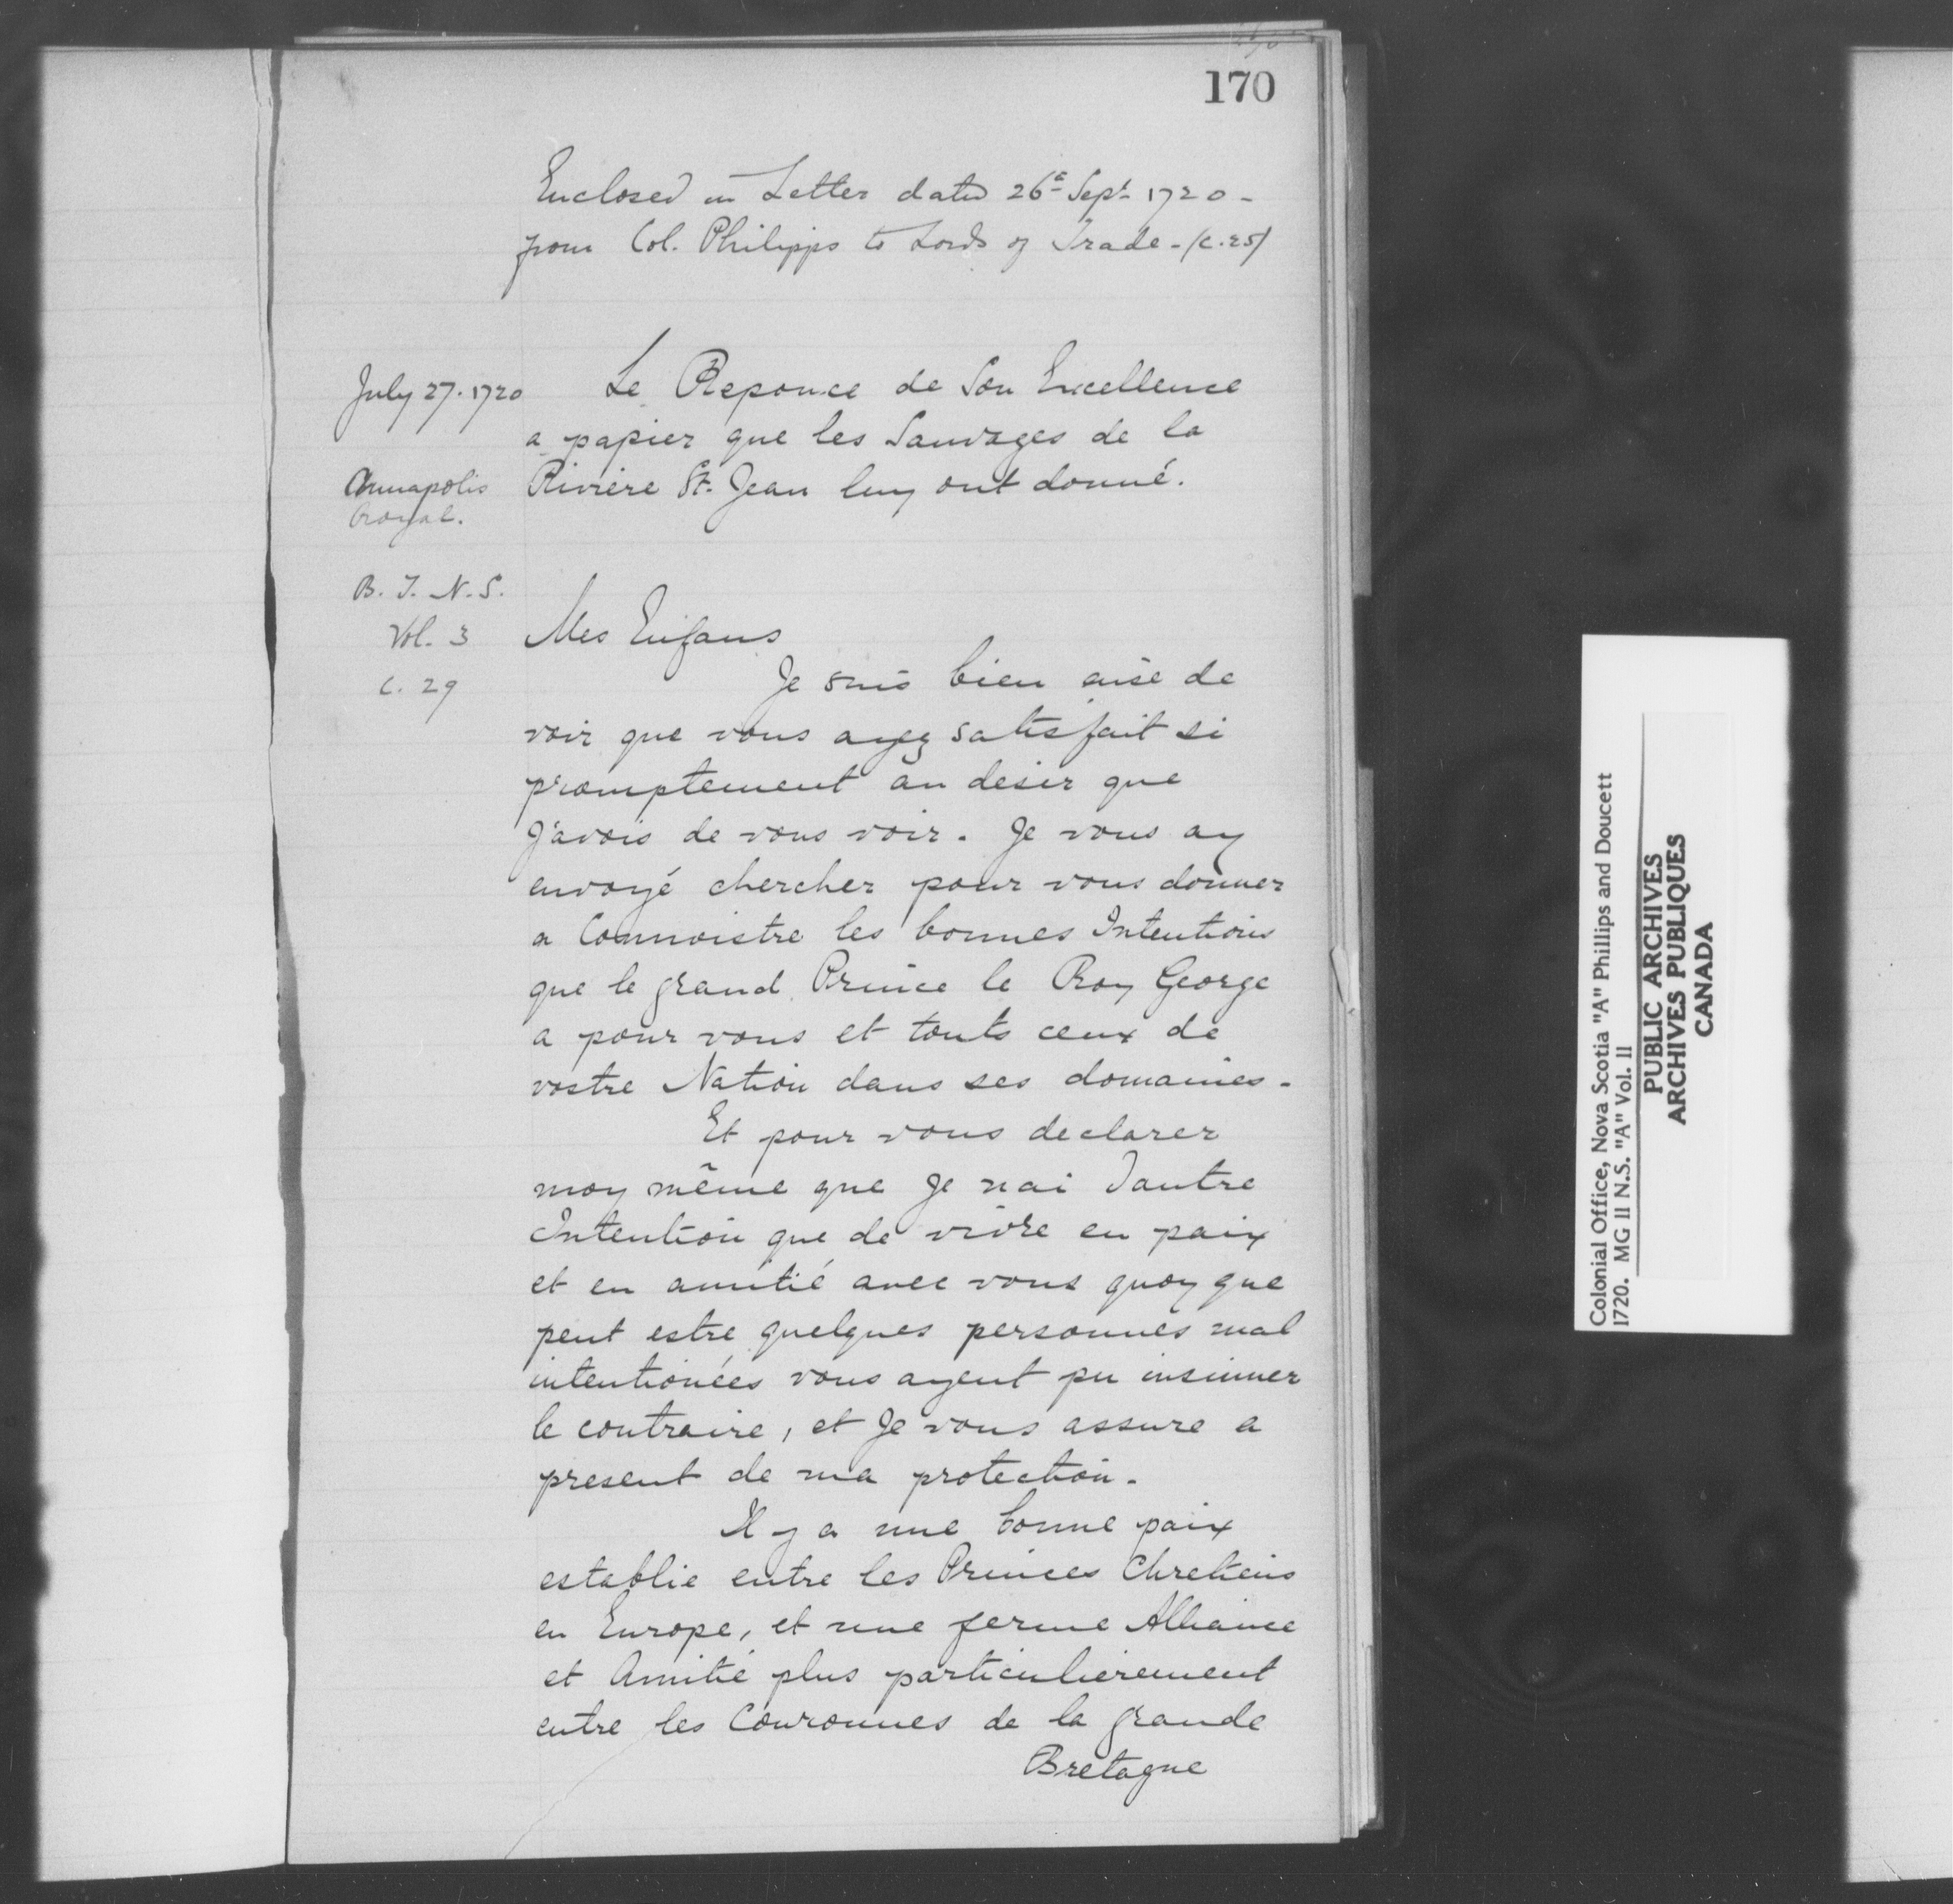 170
Enclosed in Letter dated 26th Sept 1720 -
from Col. Philipps to Lords of Trade - (C.25)
July 27. 1720
Annapolis
Royal.
B. T. N. S.
Vol. 3
C. 29
Le Reponce de Son Excellence
a papier que les Sauvages de la
Riviere St. Jean luy ont donné.
Mes Enfans
Je suis bien aise de
voir que vous ayez satisfait si
promptement au desir que
J'avois de vous voir. Je vous ay
envoyé chercher pour vous donner
a Connoistre les bonnes Intentions
que le grand Prince le Roy George
a pour vous et touts ceux de
vostre Nation dans ses domaines.
Et pour vous declarer
moy même que Je nai Dautre
Intention que de vivre en paix
et en amitié avec vous quoy que
peut estre quelques personnes mal
intentionées vous ayent pu insinuer
le contraire, et Je vous assure a
present de ma protection.
Il y a une bonne paix
establie entre les Princes Chretiens
en Europe, et une ferme Alliance
et Amitié plus particulierement
entre les Couronnes de la grande
Bretagne
Colonial Office, Nova Scotia "A" Phillips and Doucett
1720. MG 11 N.S. "A" Vol. 11
PUBLIC ARCHIVES
ARCHIVES PUBLIQUES
CANADA